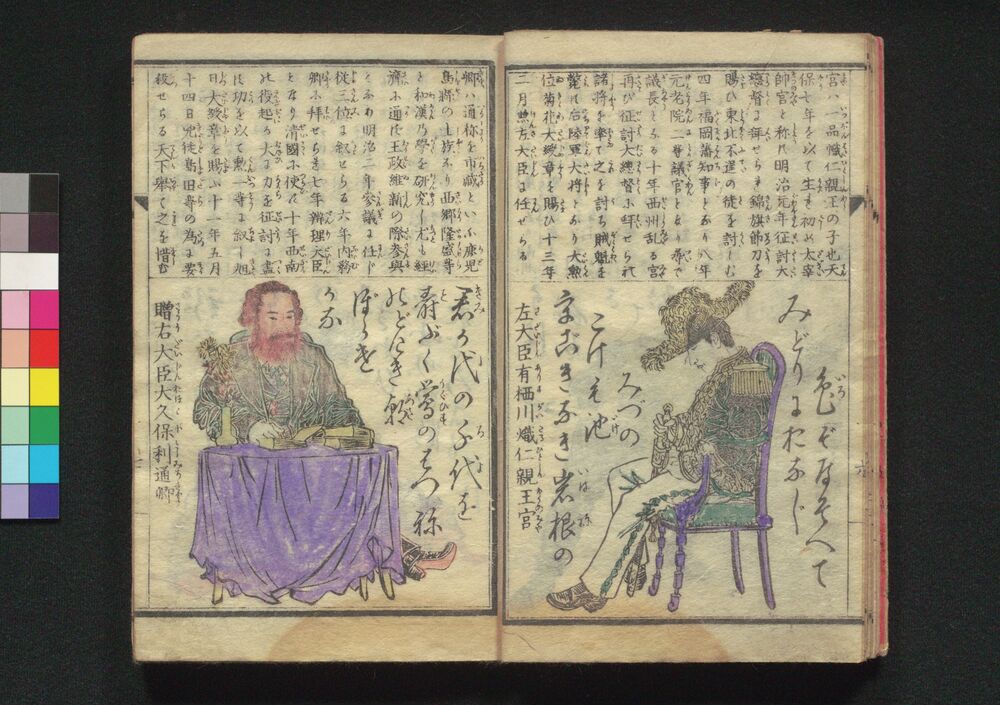 宮ハ一品幟仁親王の子也天
保七年を以て生る初め太宰
帥宮と称す明治元年征討大
總督に拜せられ錦旗節刀を
賜ひ東北不逞の徒を討しむ
四年福岡藩知事となり八年
元老院二等議官となり尋で
議長となる十年西州乱る宮
再び征討大總督に拜せられ
諸將を率て之を討ち賊魁を
斃に后陸軍大将となり大勲
位菊花大綬章を賜ひ十三年
二月左大臣に任せらる
色ぞなそへて
みどりにおなじ
みづの
こけも池
岩根の
左大臣有栖川熾仁親王宮
卿ハ通称を市藏といふ鹿児
島縣の士族なり西郷隆盛等
と和漢乃學を研究し尤も經
濟に通ず王政維新の際参與
となり明治二年参議に任じ
従三位に叙せらる六年内務
卿に拜せらる七年辨理大臣
となり清國に使す十年西南
の役起る大に力を征討に盡
す功を以て勲一等に叙し旭
日大綬章を賜ふ十一年五月
十四日兇徒島田等の為に要
殺せらる天下挙て之を惜む
君が代の千代を
壽ぶく鶯のはつ称
のどけき
贈右大臣大久保利通卿